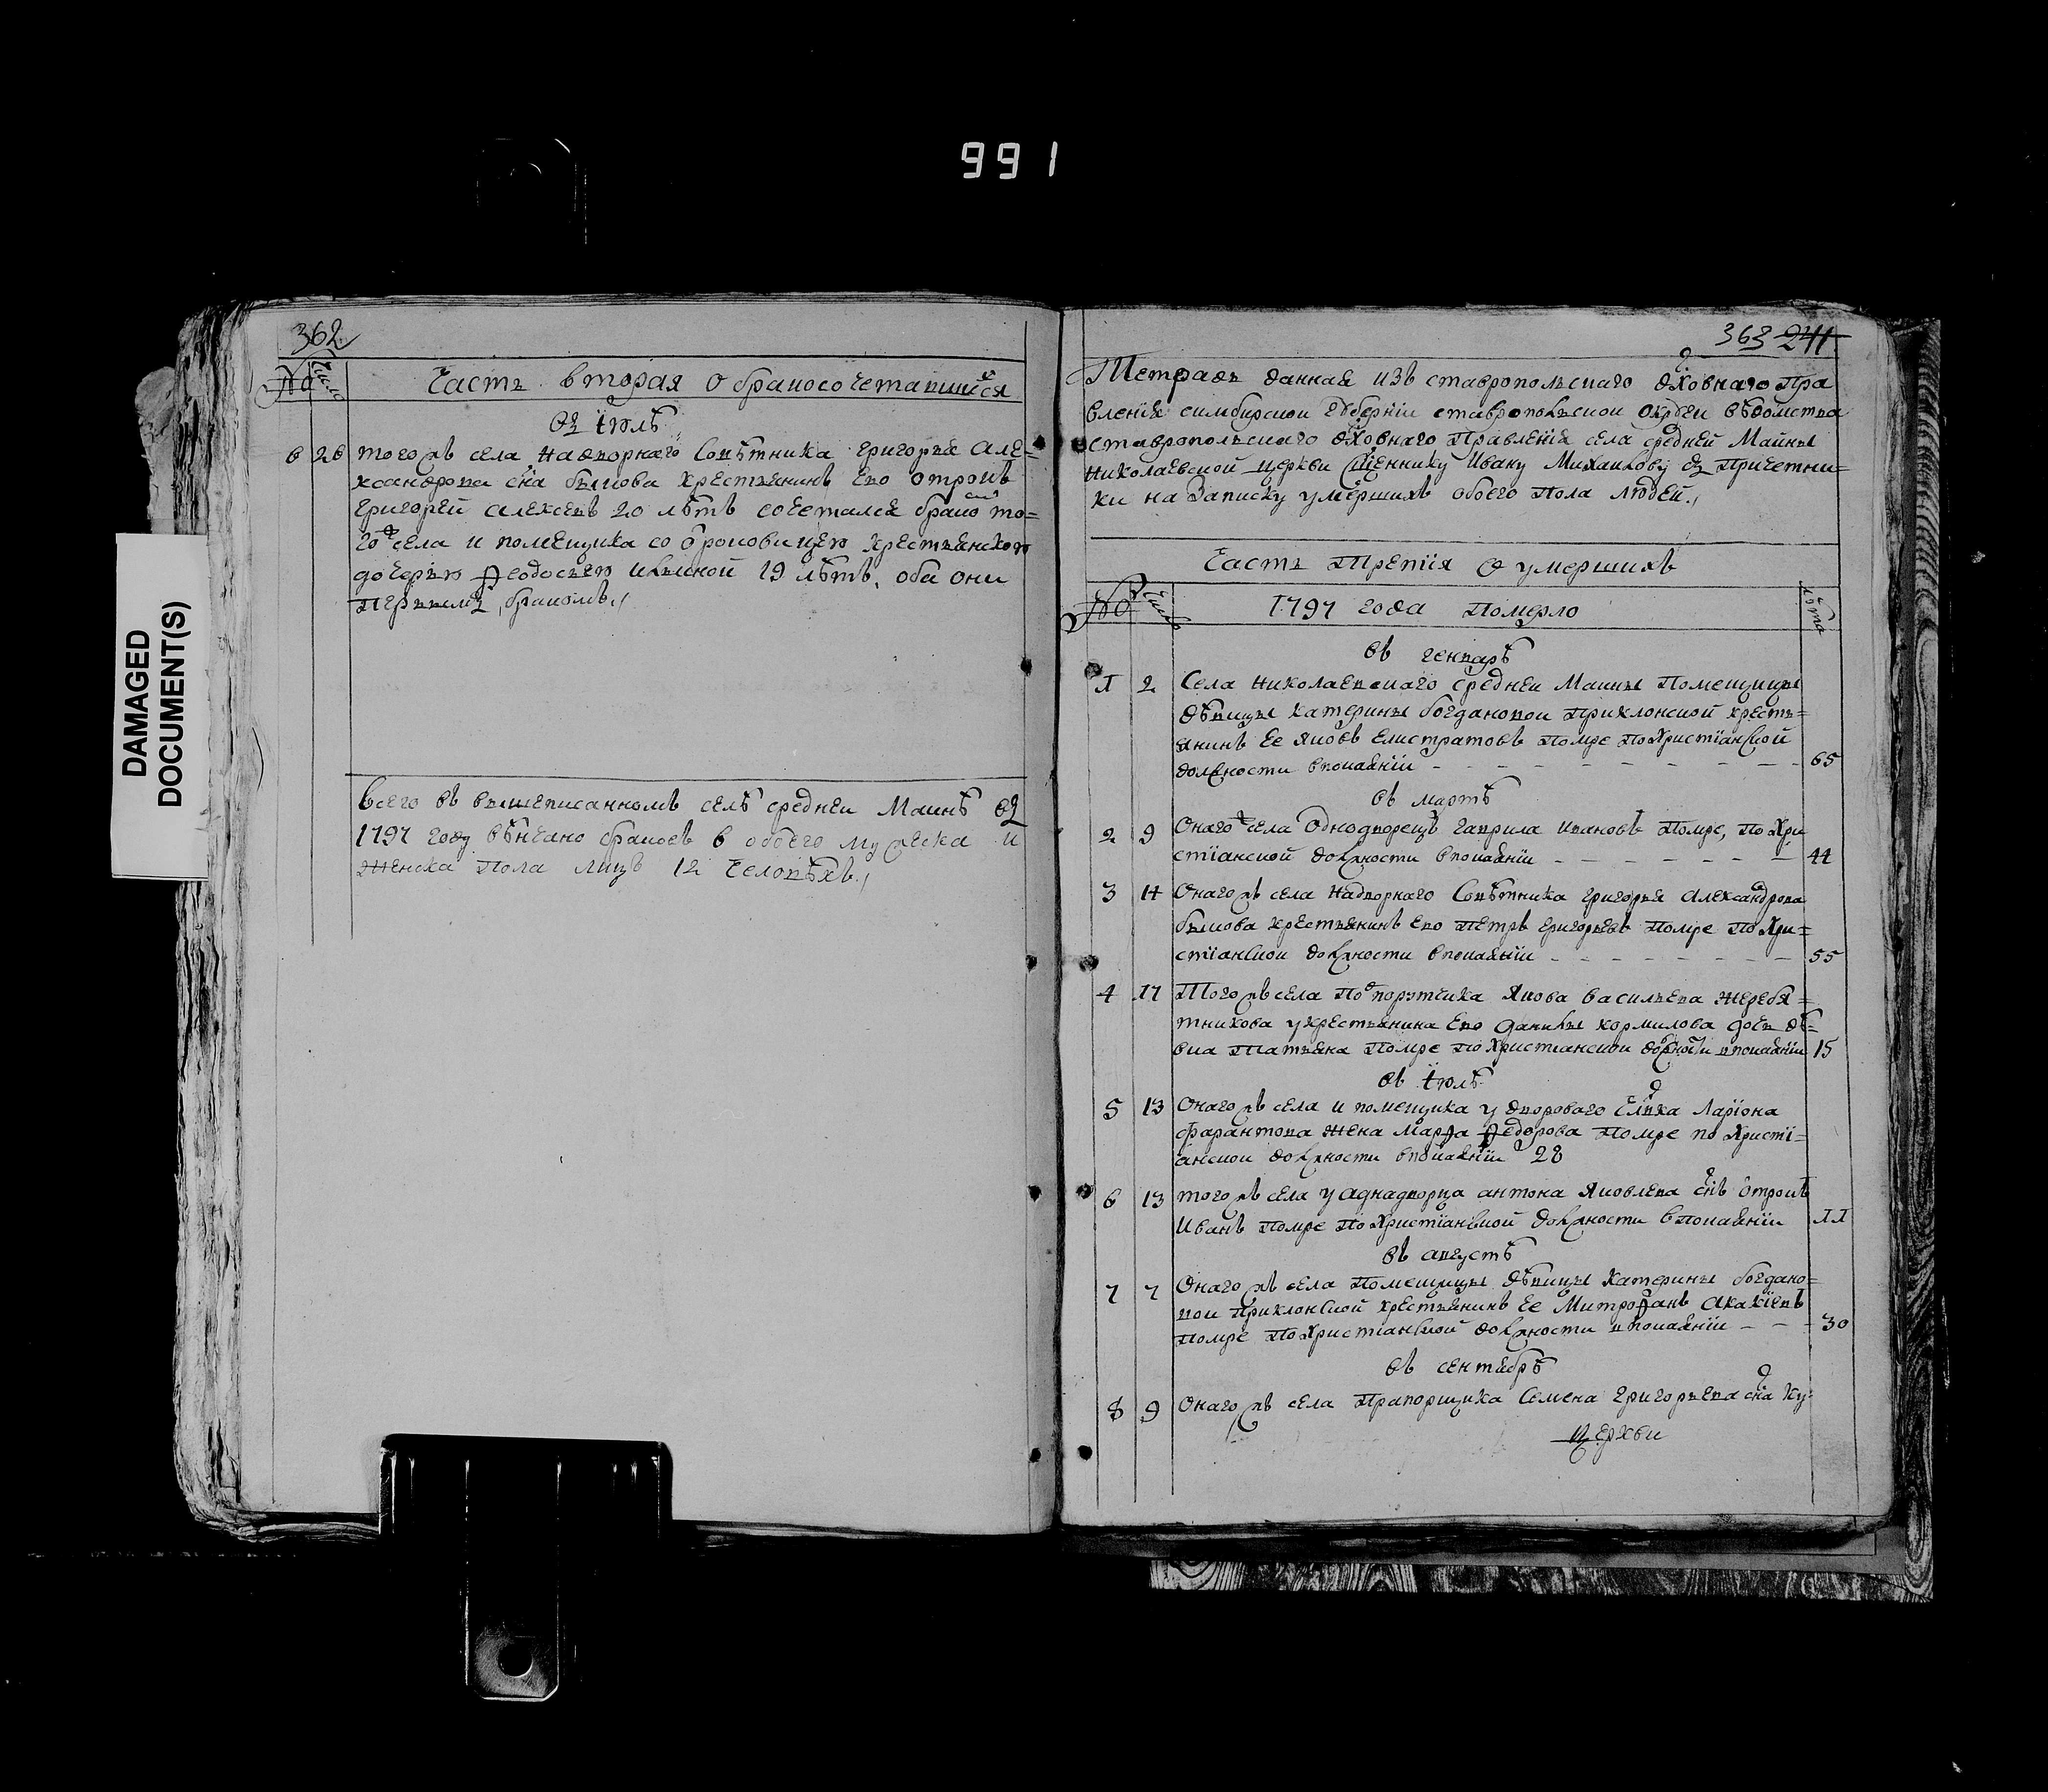 991
DAMAGED
DOCUMENT(S)
362
№ Число Часть вторая о бракосочетавшихся
въ іюлѣ
6 28 тогожъ села надворнаго Совѣтника григорья Але=
ксандрова сна бычкова крестьянинъ Ево отрокъ
григорей алексеевъ 20 лѣтъ сочетался бракомъ то=
гожъ села и помещика со отроковицею крестьянскою
дочерью Ѳеодосьею ильиной 19 лѣтъ, оба они
первымъ бракомъ,
всего въ вышеписанномъ селѣ средней Маинѣ въ
1797 году вѣнчано браковъ 6 обоего мужеска и
женска пола лицъ 12 человѣкъ,
363 241
Тетрадь данная изъ ставропольскаго дховнаго пра
вленія симбирской губерніи ставропольской округи вѣдомства
ставропольскаго дховнаго правленія села средней Майны
Николаевской церкви сщеннику Ивану Михаилову съ причетни=
ки на записку умершихъ обоего пола людей,
Часть третія о умершихъ
№ Число 1797 года померло лѣта
въ генварѣ
1 2 Села николаевскаго средней Маины помещицы
дѣвицы катерины богдановой приклонской кресть=
янинъ ее яковъ Елистратовъ помре по христіанской
должности в покаяніи 65
въ мартѣ
2 9 Онагожъ села однодворецъ гаврила ивановъ помре, по хри
стіанской должности в покаяніи 44
3 14 Онагожъ села надворнаго Совѣтника григорья александрова
бычкова крестьянинъ ево петръ григорьевъ помре по хри=
стіанской должности в покаяніи 55
4 17 Тогожъ села подпорутчика якова васильева жеребя=
тникова у крестьянина ево данилы кормилова дочь дѣ=
вка татьяна помре по христіанской должности в покаяніи 15
въ іюлѣ
5 13 Онагожъ села и помещика у двороваго члвка ларіона
фарантова жена марѳа ѳедорова помре по христі=
анской должности в покаяніи 28
6 13 тогожъ села у аднадворца антона яковлева снъ отрокъ
иванъ помре по христіанской должности в покаяніи 11
въ августѣ
7 7 Онагожъ села помещицы дѣвицы катерины богдано=
вой приклонской крестьянинъ ее митроѳанъ акакіевъ
помре по христіанской должности в покаяніи 30
въ сентябрѣ
8 9 Онагожъ села прапорщика Семена григорьева сна ку=
церкви